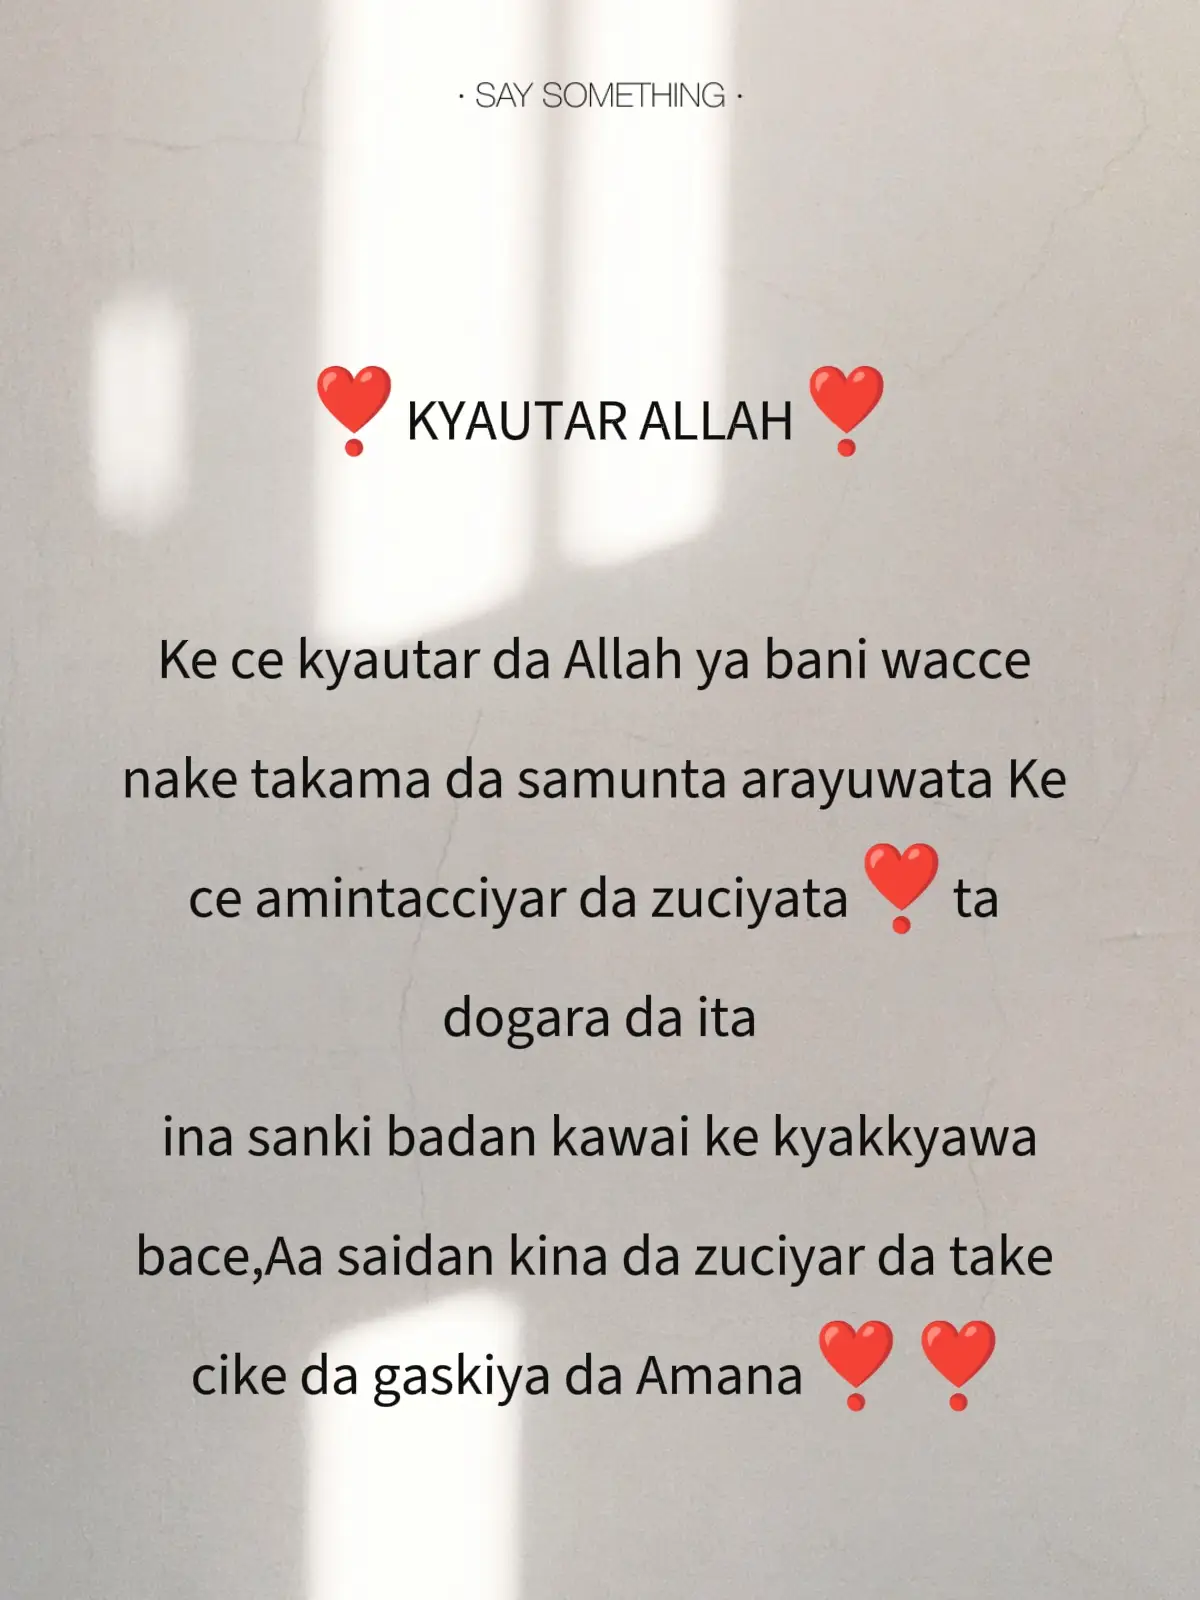 · SAY SOMETHING ·
❣️ KYAUTAR ALLAH ❣️
Ke ce kyautar da Allah ya bani wacce
nake takama da samunta arayuwata Ke
ce amintacciyar da zuciyata ❣️ ta
dogara da ita
ina sanki badan kawai ke kyakkyawa
bace,Aa saidan kina da zuciyar da take
cike da gaskiya da Amana ❣️ ❣️